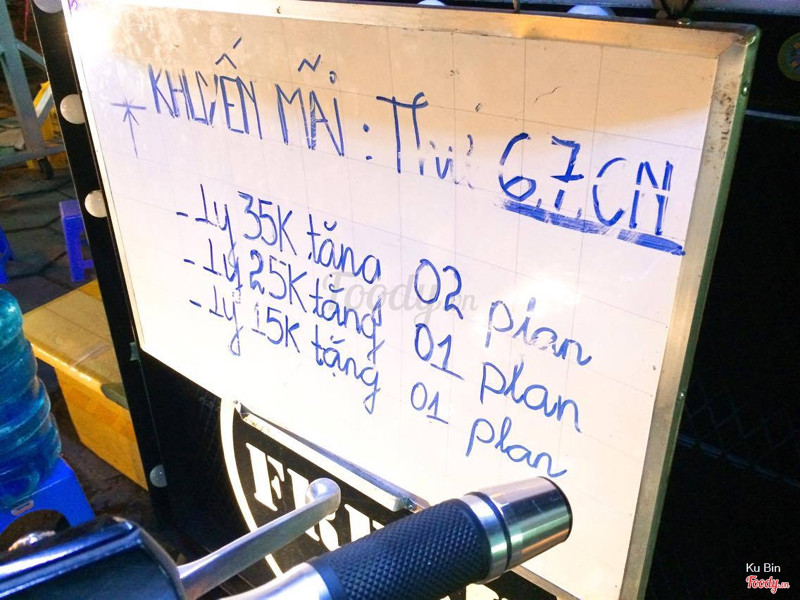 KHUYẾN MÃI : Thứ 6,7,CN
- 1ly 35K tặng 02 plan
- 1ly 25K tặng 01 plan
- 1ly 15K tặng 01 plan
Foody.vn
Ku Bin
Foody.vn